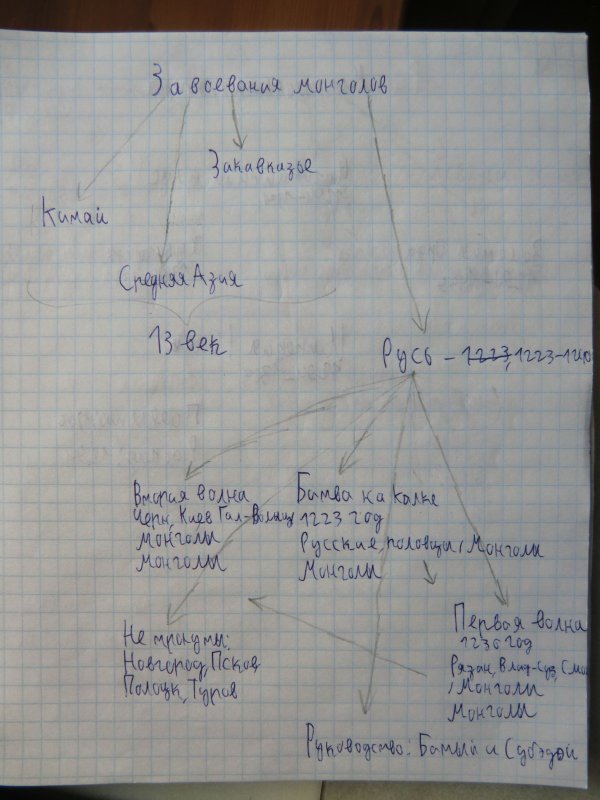 Завоевания монголов
Закавказье
Китай
Средняя Азия
13 век
Русь – 1223, 1223–1240
Вторая волна
Черн, Киев Гал-Волынц
Монголы
Монголы
Битва на Калке
1223 год
Русские, половцы / Монголы
Монголы
Не тронуты:
Новгород, Псков,
Полоцк, Туров
Первая волна
1236 год
Рязан, Влад-Суз, Смол
/ Монголы
Монголы
Руководство: Батый и Субэдэй